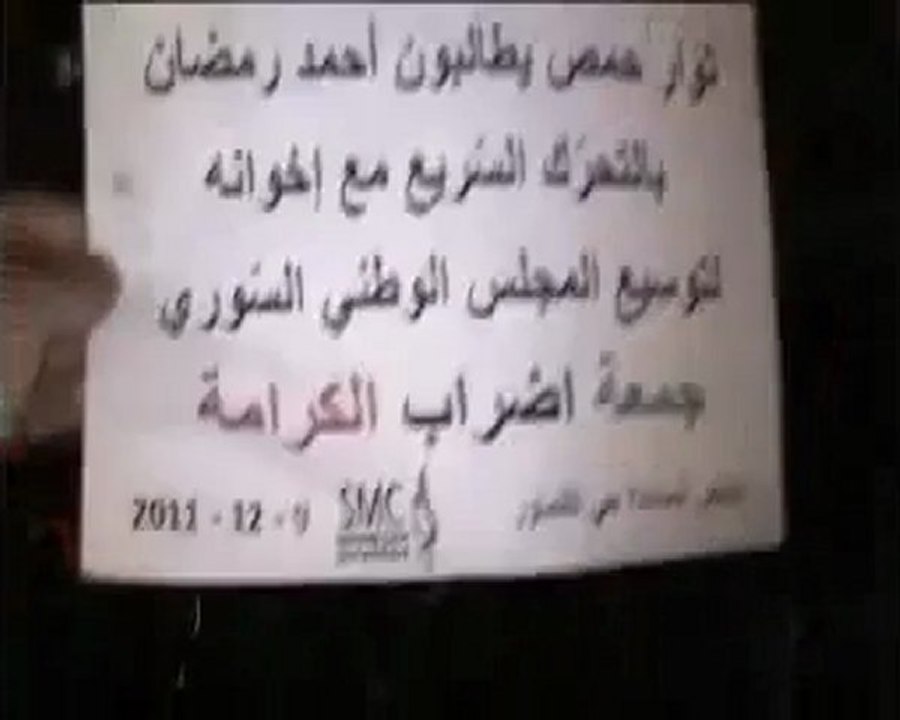 ثوار حمص يطالبون أحمد رمضان
بالتحرّك السّريع مع إخوانه
لتوسيع المجلس الوطني السّوري
جمعة اضراب الكرامة
حمص
2011 - 12 - 9 SMC